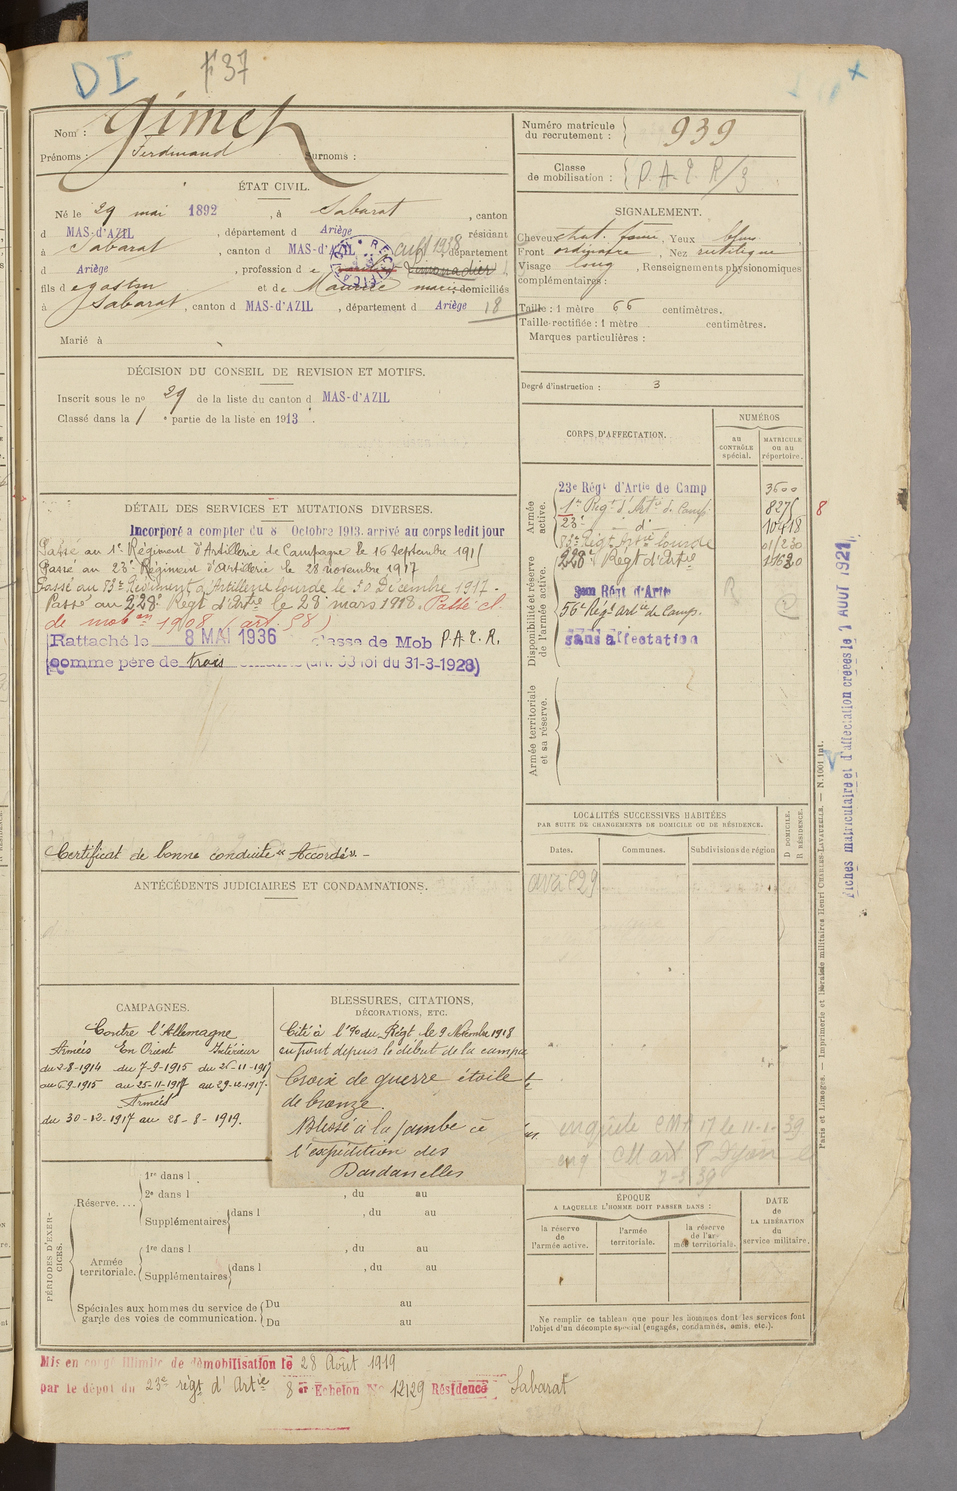 DI F37
Nom : Gimet
Prénoms : Ferdinand Surnoms :
Numéro matricule du recrutement : 939
Classe de mobilisation : P.A.E.R/3
ÉTAT CIVIL.
Né le 29 mai 1892, à Sabarat, canton
d MAS-d'AZIL, département d Ariège résidant
à Sabarat, canton d MAS-d'AZIL, département
d Ariège, profession d e Limonadier
fils d e et de Maurie Marie domiciliés
à Sabarat, canton d MAS-d'AZIL, département d Ariège 18
Marié à
SIGNALEMENT.
Cheveux chat. foncé, Yeux bleus
Front ordinaire, Nez rectiligne
Visage long, Renseignements physionomiques
complémentaires :
Taille : 1 mètre 66 centimètres.
Taille rectifiée : 1 mètre centimètres.
Marques particulières :
Degré d'instruction : 3
DÉCISION DU CONSEIL DE REVISION ET MOTIFS.
Inscrit sous le no 29 de la liste du canton d MAS-d'AZIL
Classé dans la 1 e partie de la liste en 1913.
DÉTAIL DES SERVICES ET MUTATIONS DIVERSES.
Incorporé a compter du 8 Octobre 1913. arrivé au corps ledit jour
Passé au 1er Régiment d'Artillerie de Campagne le 16 Septembre 1915
Passé au 23e Régiment d'Artillerie le 28 novembre 1917
Passé au 83e Régiment d'Artillerie lourde le 30 Décembre 1917.
Passé au 238e Régt d'Artie le 23 mars 1918. Passé cl.
de mobon 1908 (art. 58)
Rattaché le 8 MAI 1936 Classe de Mob P.A.E.R.
(comme père de trois enfants (art. 58 loi du 31-3-1928)
Certificat de bonne conduite « Accordé ». -
CORPS D'AFFECTATION.
NUMÉROS
au CONTRÔLE spécial.
MATRICULE ou au répertoire.
Armée active.
23e Régt d'Artie de Camp 3600
1er Régt d'Artie de Camp 8275 8
23e d° 10418
83e Régt Artie lourde 01/230
238e Régt d'Artie
Disponibilité et réserve de l'armée active.
Régt d'Artie
56e Régt artie de Camp. R
sans affectation
Armée territoriale et sa réserve.
Fiches matriculaire et d'affectation créées le 1 AOUT 1921
LOCALITÉS SUCCESSIVES HABITÉES
PAR SUITE DE CHANGEMENTS DE DOMICILE OU DE RÉSIDENCE.
D DOMICILE. R RÉSIDENCE.
Dates. Communes. Subdivisions de région
enquête CM 17 le 11-1-39
enq
7-3-39
ANTÉCÉDENTS JUDICIAIRES ET CONDAMNATIONS.
CAMPAGNES.
Contre l'Allemagne
Armées En Orient Intérieur
du 2-8-1914 du 7-9-1915 du 26-11-1917
au 6-9-1915 au 25-11-1917 au 29-12-1917.
Armées
du 30-12-1917 au 28-8-1919.
BLESSURES, CITATIONS,
DÉCORATIONS, ETC.
Cité à l'Ore du Régt le 9 Novembre 1918
au front depuis le début de la campa
Croix de guerre étoile
de bronze.
Blessé à la jambe à
l'expédition des
Dardanelles
PÉRIODES D'EXERCICES.
Réserve....
1re dans l , du au
2e dans l , du au
Supplémentaires dans l , du au
Armée territoriale.
1re dans l , du au
Supplémentaires dans l , du au
Spéciales aux hommes du service de garde des voies de communication.
Du au
Du au
ÉPOQUE
A LAQUELLE L'HOMME DOIT PASSER DANS :
la réserve de l'armée active.
l'armée territoriale.
la réserve de l'armée territoriale.
DATE de LA LIBÉRATION du service militaire.
Ne remplir ce tableau que pour les hommes dont les services font
l'objet d'un décompte spécial (engagés, condamnés, omis, etc.).
Paris et Limoges. — Imprimerie et librairie militaires Henri CHARLES-LAVAUZELLE. — N. 1001 int.
Mis en congé illimité de démobilisation le 28 Août 1919
par le dépôt du 23e régt d'Artie 8 er Echelon No 12129 Résidence Sabarat